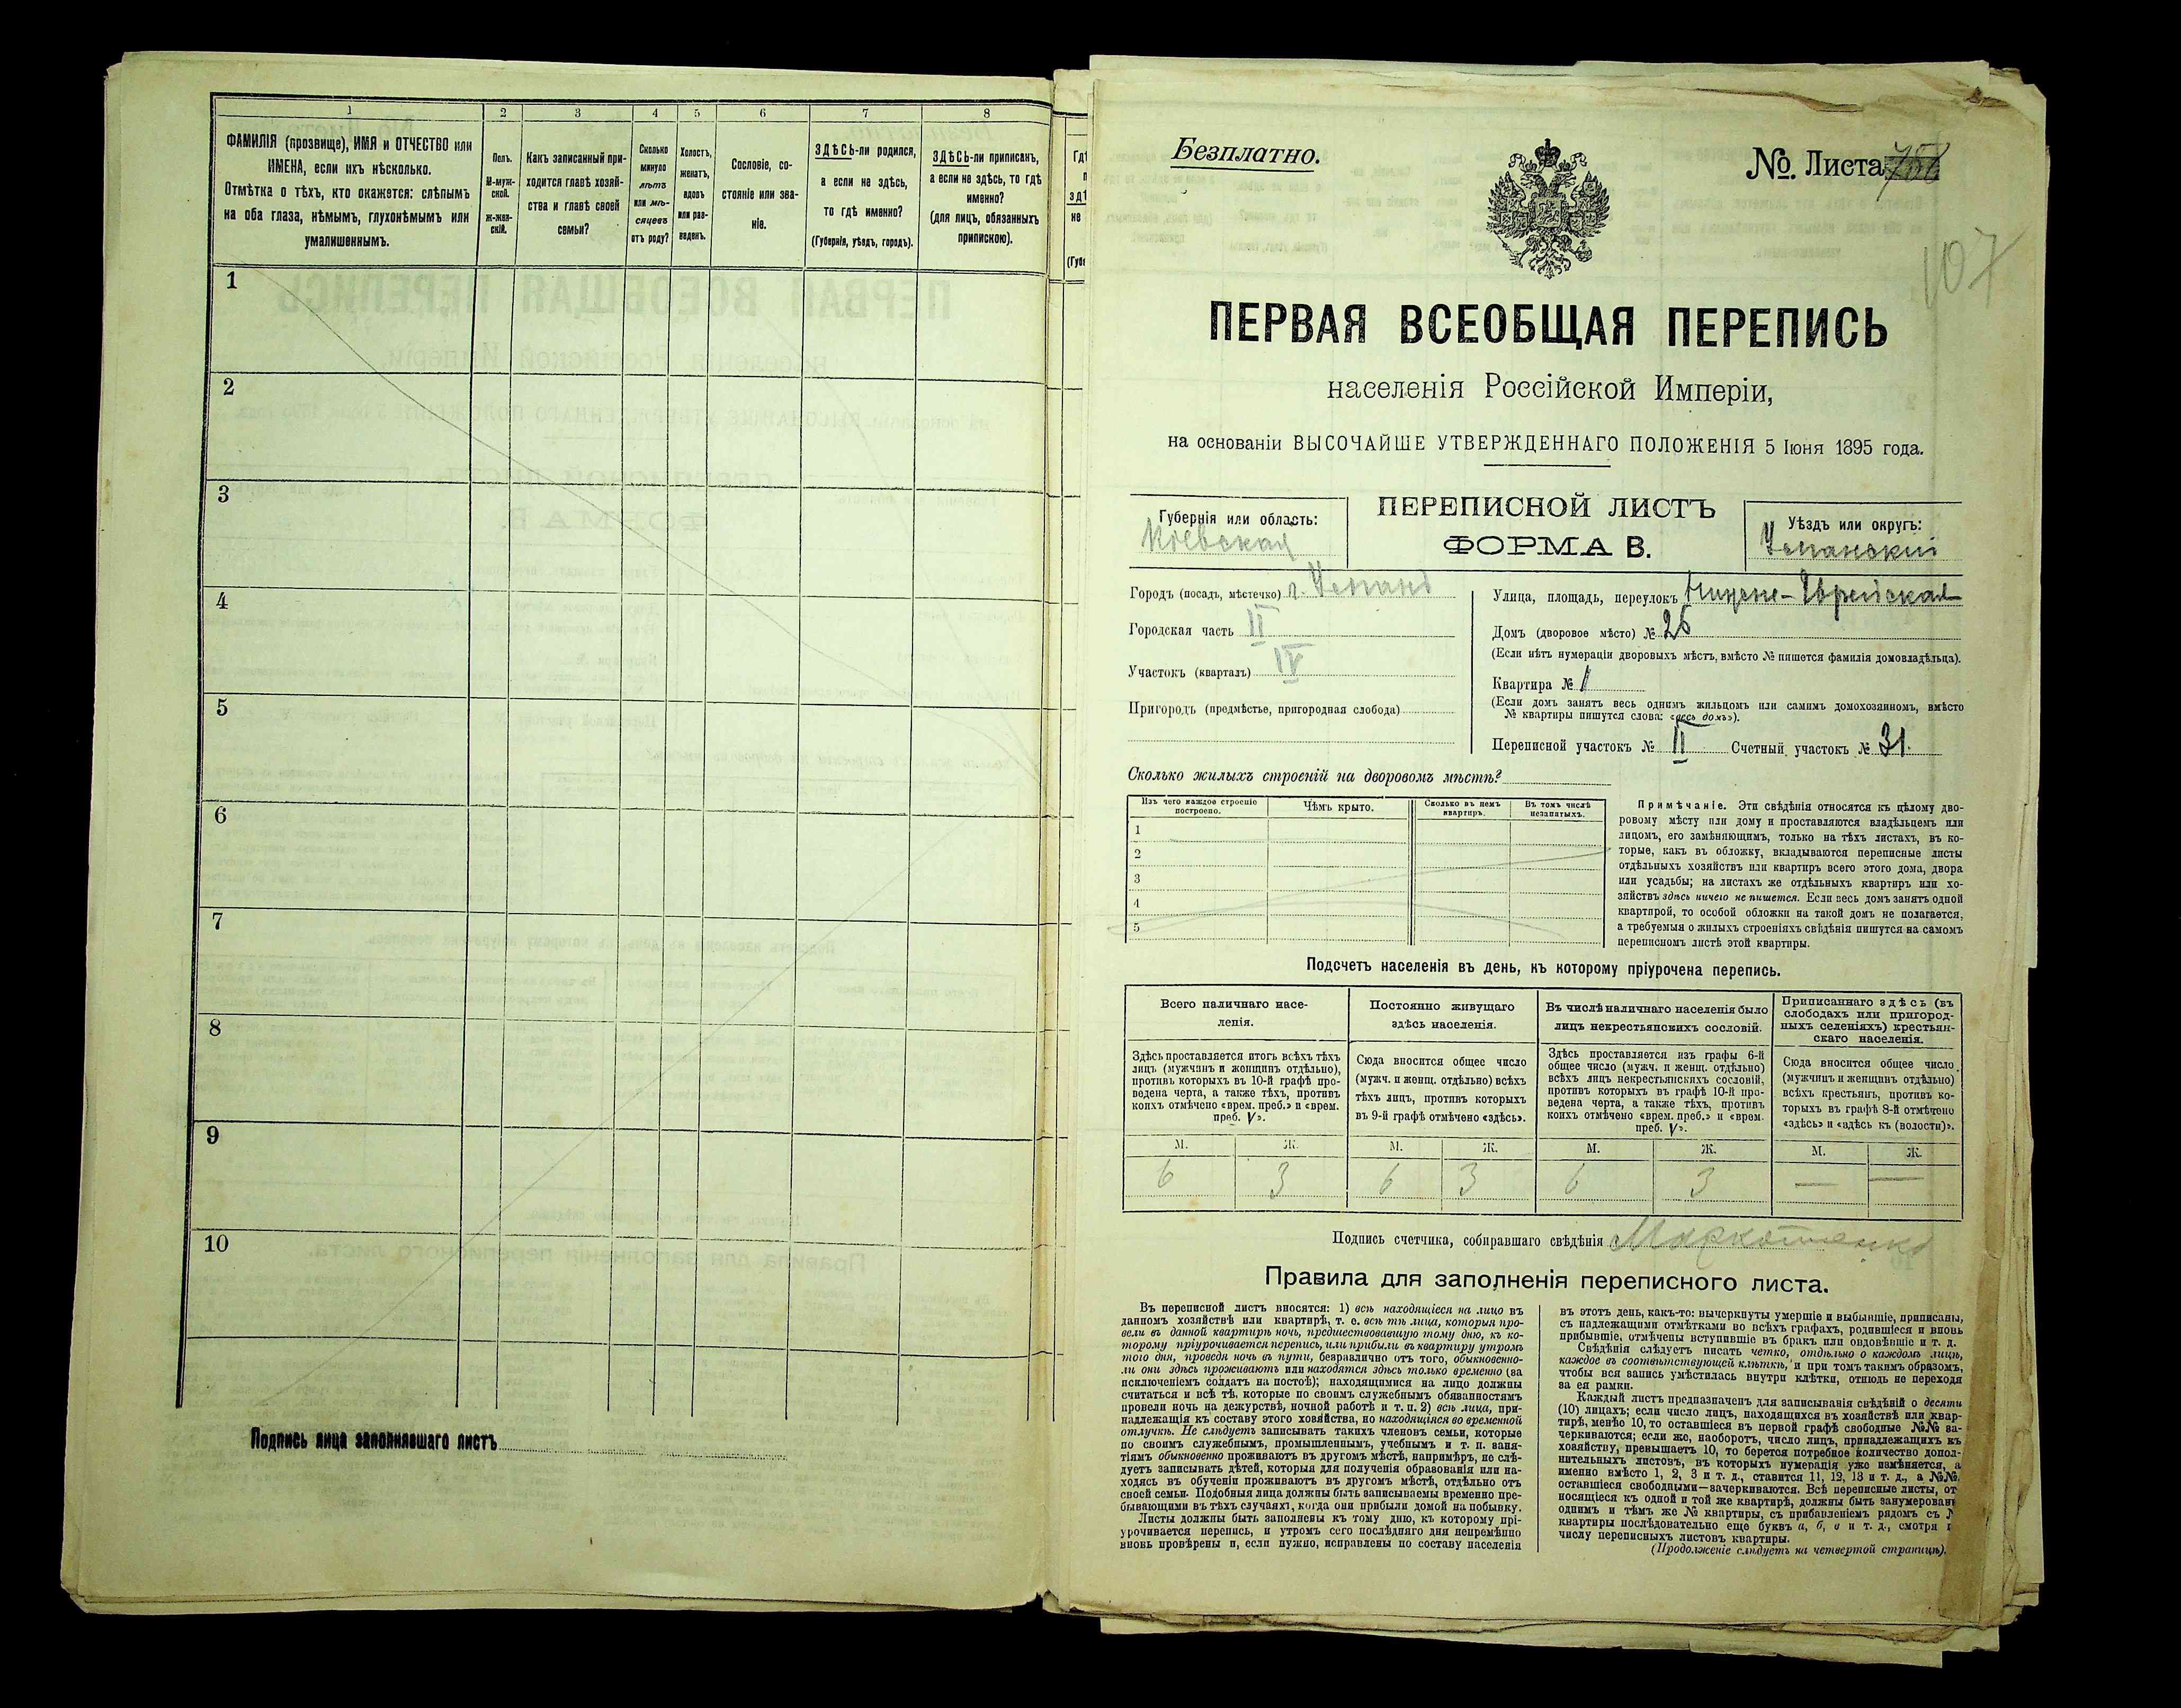 1
2
3
4
5
6
7
8
ФАМИЛІЯ (прозвище), ИМЯ и ОТЧЕСТВО или
ИМЕНА, если ихъ нѣсколько.
Отмѣтка о тѣхъ, кто окажется: слѣпымъ
на оба глаза, нѣмымъ, глухонѣмымъ или
умалишеннымъ.
Полъ.
М-муж-
ской.
ж-жен-
скій.
Какъ записанный при-
ходится главѣ хозяй-
ства и главѣ своей
семьи?
Сколько
минуло
лѣтъ
или мѣ-
сяцевъ
отъ роду?
Холостъ,
женатъ,
вдовъ
или раз-
веденъ.
Сословіе, со-
стояніе или зва-
ніе.
ЗДѢСЬ-ли родился,
а если не здѣсь,
то гдѣ именно?
(Губернія, уѣздъ, городъ).
ЗДѢСЬ-ли приписанъ,
а если не здѣсь, то гдѣ
именно?
(для лицъ, обязанныхъ
припискою).
1
2
3
4
5
6
7
8
9
10
Подпись лица заполнявшаго листъ
Безплатно.
№. Листа
107
ПЕРВАЯ ВСЕОБЩАЯ ПЕРЕПИСЬ
населенія Россійской Имперіи,
на основаніи ВЫСОЧАЙШЕ УТВЕРЖДЕННАГО ПОЛОЖЕНІЯ 5 Іюня 1895 года.
Губернія или область:
Кіевская
ПЕРЕПИСНОЙ ЛИСТЪ
ФОРМА В.
Уѣздъ или округъ:
Уманскій
Городъ (посадъ, мѣстечко) г. Умань
Городская часть II
Участокъ (кварталъ) IV
Пригородъ (предмѣстье, пригородная слобода)
Улица, площадь, переулокъ Нижне-Еврейская
Домъ (дворовое мѣсто) № 26
(Если нѣтъ нумераціи дворовыхъ мѣстъ, вмѣсто № пишется фамилія домовладѣльца).
Квартира № 1
(Если домъ занятъ весь однимъ жильцомъ или самимъ домохозяиномъ, вмѣсто
№ квартиры пишутся слова: «весь домъ»).
Переписной участокъ № II Счетный участокъ № 31.
Сколько жилыхъ строеній на дворовомъ мѣстѣ?
Изъ чего каждое строеніе
построено.
Чѣмъ крыто.
Сколько въ немъ
квартиръ.
Въ томъ числѣ
незанятыхъ.
1
2
3
4
5
Примѣчаніе. Эти свѣдѣнія относятся къ цѣлому дво-
ровому мѣсту или дому и проставляются владѣльцемъ или
лицомъ, его замѣняющимъ, только на тѣхъ листахъ, въ ко-
торые, какъ въ обложку, вкладываются переписные листы
отдѣльныхъ хозяйствъ или квартиръ всего этого дома, двора
или усадьбы; на листахъ же отдѣльныхъ квартиръ или хо-
зяйствъ здѣсь ничего не пишется. Если весь домъ занятъ одной
квартирой, то особой обложки на такой домъ не полагается,
а требуемыя о жилыхъ строеніяхъ свѣдѣнія пишутся на самомъ
переписномъ листѣ этой квартиры.
Подсчетъ населенія въ день, къ которому пріурочена перепись.
Всего наличнаго насе-
ленія.
Здѣсь проставляется итогъ всѣхъ тѣхъ
лицъ (мужчинъ и женщинъ отдѣльно),
противъ которыхъ въ 10-й графѣ про-
ведена черта, а также тѣхъ, противъ
коихъ отмѣчено «врем. преб.» и «врем.
преб. V».
Постоянно живущаго
здѣсь населенія.
Сюда вносится общее число
(мужч. и женщ. отдѣльно) всѣхъ
тѣхъ лицъ, противъ которыхъ
въ 9-й графѣ отмѣчено «здѣсь».
Въ числѣ наличнаго населенія было
лицъ некрестьянскихъ сословій.
Здѣсь проставляется изъ графы 6-й
общее число (мужч. и женщ. отдѣльно)
всѣхъ лицъ некрестьянскихъ сословій,
противъ которыхъ въ графѣ 10-й про-
ведена черта, а также тѣхъ, противъ
коихъ отмѣчено «врем. преб.» и «врем.
преб. V».
Приписаннаго здѣсь (въ
слободахъ или пригород-
ныхъ селеніяхъ) крестьян-
скаго населенія.
Сюда вносится общее число
(мужчинъ и женщинъ отдѣльно)
всѣхъ крестьянъ, противъ ко-
торыхъ въ графѣ 8-й отмѣчено
«здѣсь» и «здѣсь къ (волости)».
М. Ж. М. Ж. М. Ж. М. Ж.
6 3 6 3 6 3 — —
Подпись счетчика, собиравшаго свѣдѣнія
Правила для заполненія переписного листа.
Въ переписной листъ вносятся: 1) всѣ находящіеся на лицо въ
данномъ хозяйствѣ или квартирѣ, т. е. всѣ тѣ лица, которыя про-
вели въ данной квартирѣ ночь, предшествовавшую тому дню, къ ко-
торому пріурочивается перепись, или прибыли въ квартиру утромъ
того дня, проведя ночь въ пути, безразлично отъ того, обыкновенно-
ли они здѣсь проживаютъ или находятся здѣсь только временно (за
исключеніемъ солдатъ на постоѣ); находящимися на лицо должны
считаться и всѣ тѣ, которые по своимъ служебнымъ обязанностямъ
провели ночь на дежурствѣ, ночной работѣ и т. п. 2) всѣ лица, при-
надлежащія къ составу этого хозяйства, но находящіяся во временной
отлучкѣ. Не слѣдуетъ записывать такихъ членовъ семьи, которые
по своимъ служебнымъ, промышленнымъ, учебнымъ и т. п. заня-
тіямъ обыкновенно проживаютъ въ другомъ мѣстѣ, напримѣръ, не слѣ-
дуетъ записывать дѣтей, которыя для полученія образованія или на-
ходясь въ обученіи проживаютъ въ другомъ мѣстѣ, отдѣльно отъ
своей семьи. Подобныя лица должны быть записываемы временно пре-
бывающими въ тѣхъ случаяхъ, когда они прибыли домой на побывку.
Листы должны быть заполнены къ тому дню, къ которому прі-
урочивается перепись, и утромъ сего послѣдняго дня непремѣнно
вновь провѣрены и, если нужно, исправлены по составу населенія
въ этотъ день, какъ-то: вычеркнуты умершіе и выбывшіе, приписаны,
съ надлежащими отмѣтками во всѣхъ графахъ, родившіеся и вновь
прибывшіе, отмѣчены вступившіе въ бракъ или овдовѣвшіе и т. д.
Свѣдѣнія слѣдуетъ писать четко, отдѣльно о каждомъ лицѣ,
каждое въ соотвѣтствующей клѣткѣ, и при томъ такимъ образомъ,
чтобы вся запись умѣстилась внутри клѣтки, отнюдь не переходя
за ея рамки.
Каждый листъ предназначенъ для записыванія свѣдѣній о десяти
(10) лицахъ; если число лицъ, находящихся въ хозяйствѣ или квар-
тирѣ, менѣе 10, то оставшіеся въ первой графѣ свободные №№ за-
черкиваются; если же, наоборотъ, число лицъ, принадлежащихъ къ
хозяйству, превышаетъ 10, то берется потребное количество допол-
нительныхъ листовъ, въ которыхъ нумерація уже измѣняется, а
именно вмѣсто 1, 2, 3 и т. д., ставится 11, 12, 13 и т. д., а №№
оставшіеся свободными—зачеркиваются. Всѣ переписные листы, от
носящіеся къ одной и той же квартирѣ, должны быть занумерован
однимъ и тѣмъ же № квартиры, съ прибавленіемъ рядомъ съ
квартиры послѣдовательно еще буквъ а, б, в и т. д., смотря
числу переписныхъ листовъ квартиры.
(Продолженіе слѣдуетъ на четвертой страницѣ).